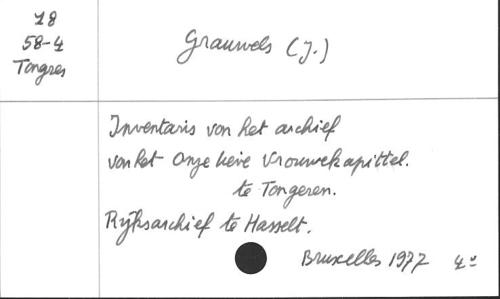 18
58-4
Tongres
Grauwels (J.)
Inventaris van het archief
van het Onze Lieve Vrouwekapittel.
te Tongeren.
Rijksarchief te Hasselt.
Bruxelles 1977 4°